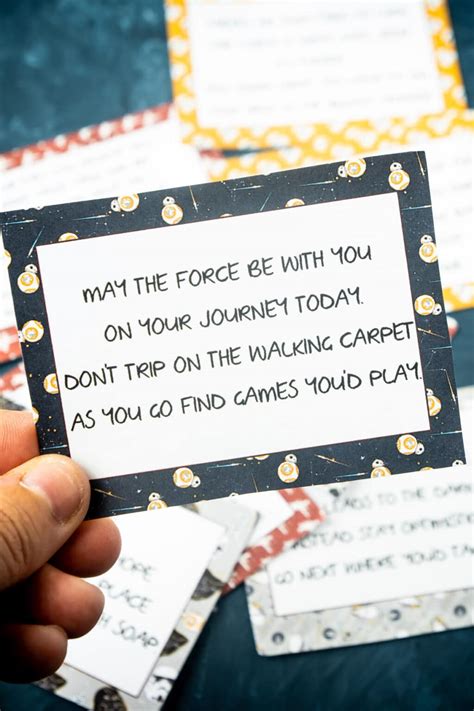 MAY THE FORCE BE WITH YOU
ON YOUR JOURNEY TODAY.
DON'T TRIP ON THE WALKING CARPET
AS YOU GO FIND GAMES YOU'D PLAY.
LEADS TO THE DARK
INSTEAD STAY OPTIMIS
GO NEXT WHERE YOU'D
ORE
PLACE
H SOAP